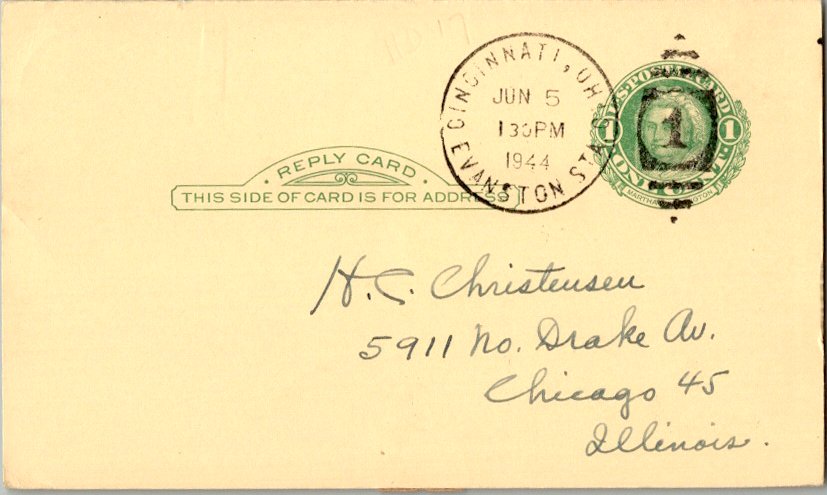 CINCINNATI, OH
JUN 5
130PM
1944
EVANSTON STA.
U.S. POSTAL CARD
1 1 1
ONE CENT
MARTHA WASHINGTON
REPLY CARD
THIS SIDE OF CARD IS FOR ADDRESS
H. C. Christensen
5911 No. Drake Av.
Chicago 45
Illinois.